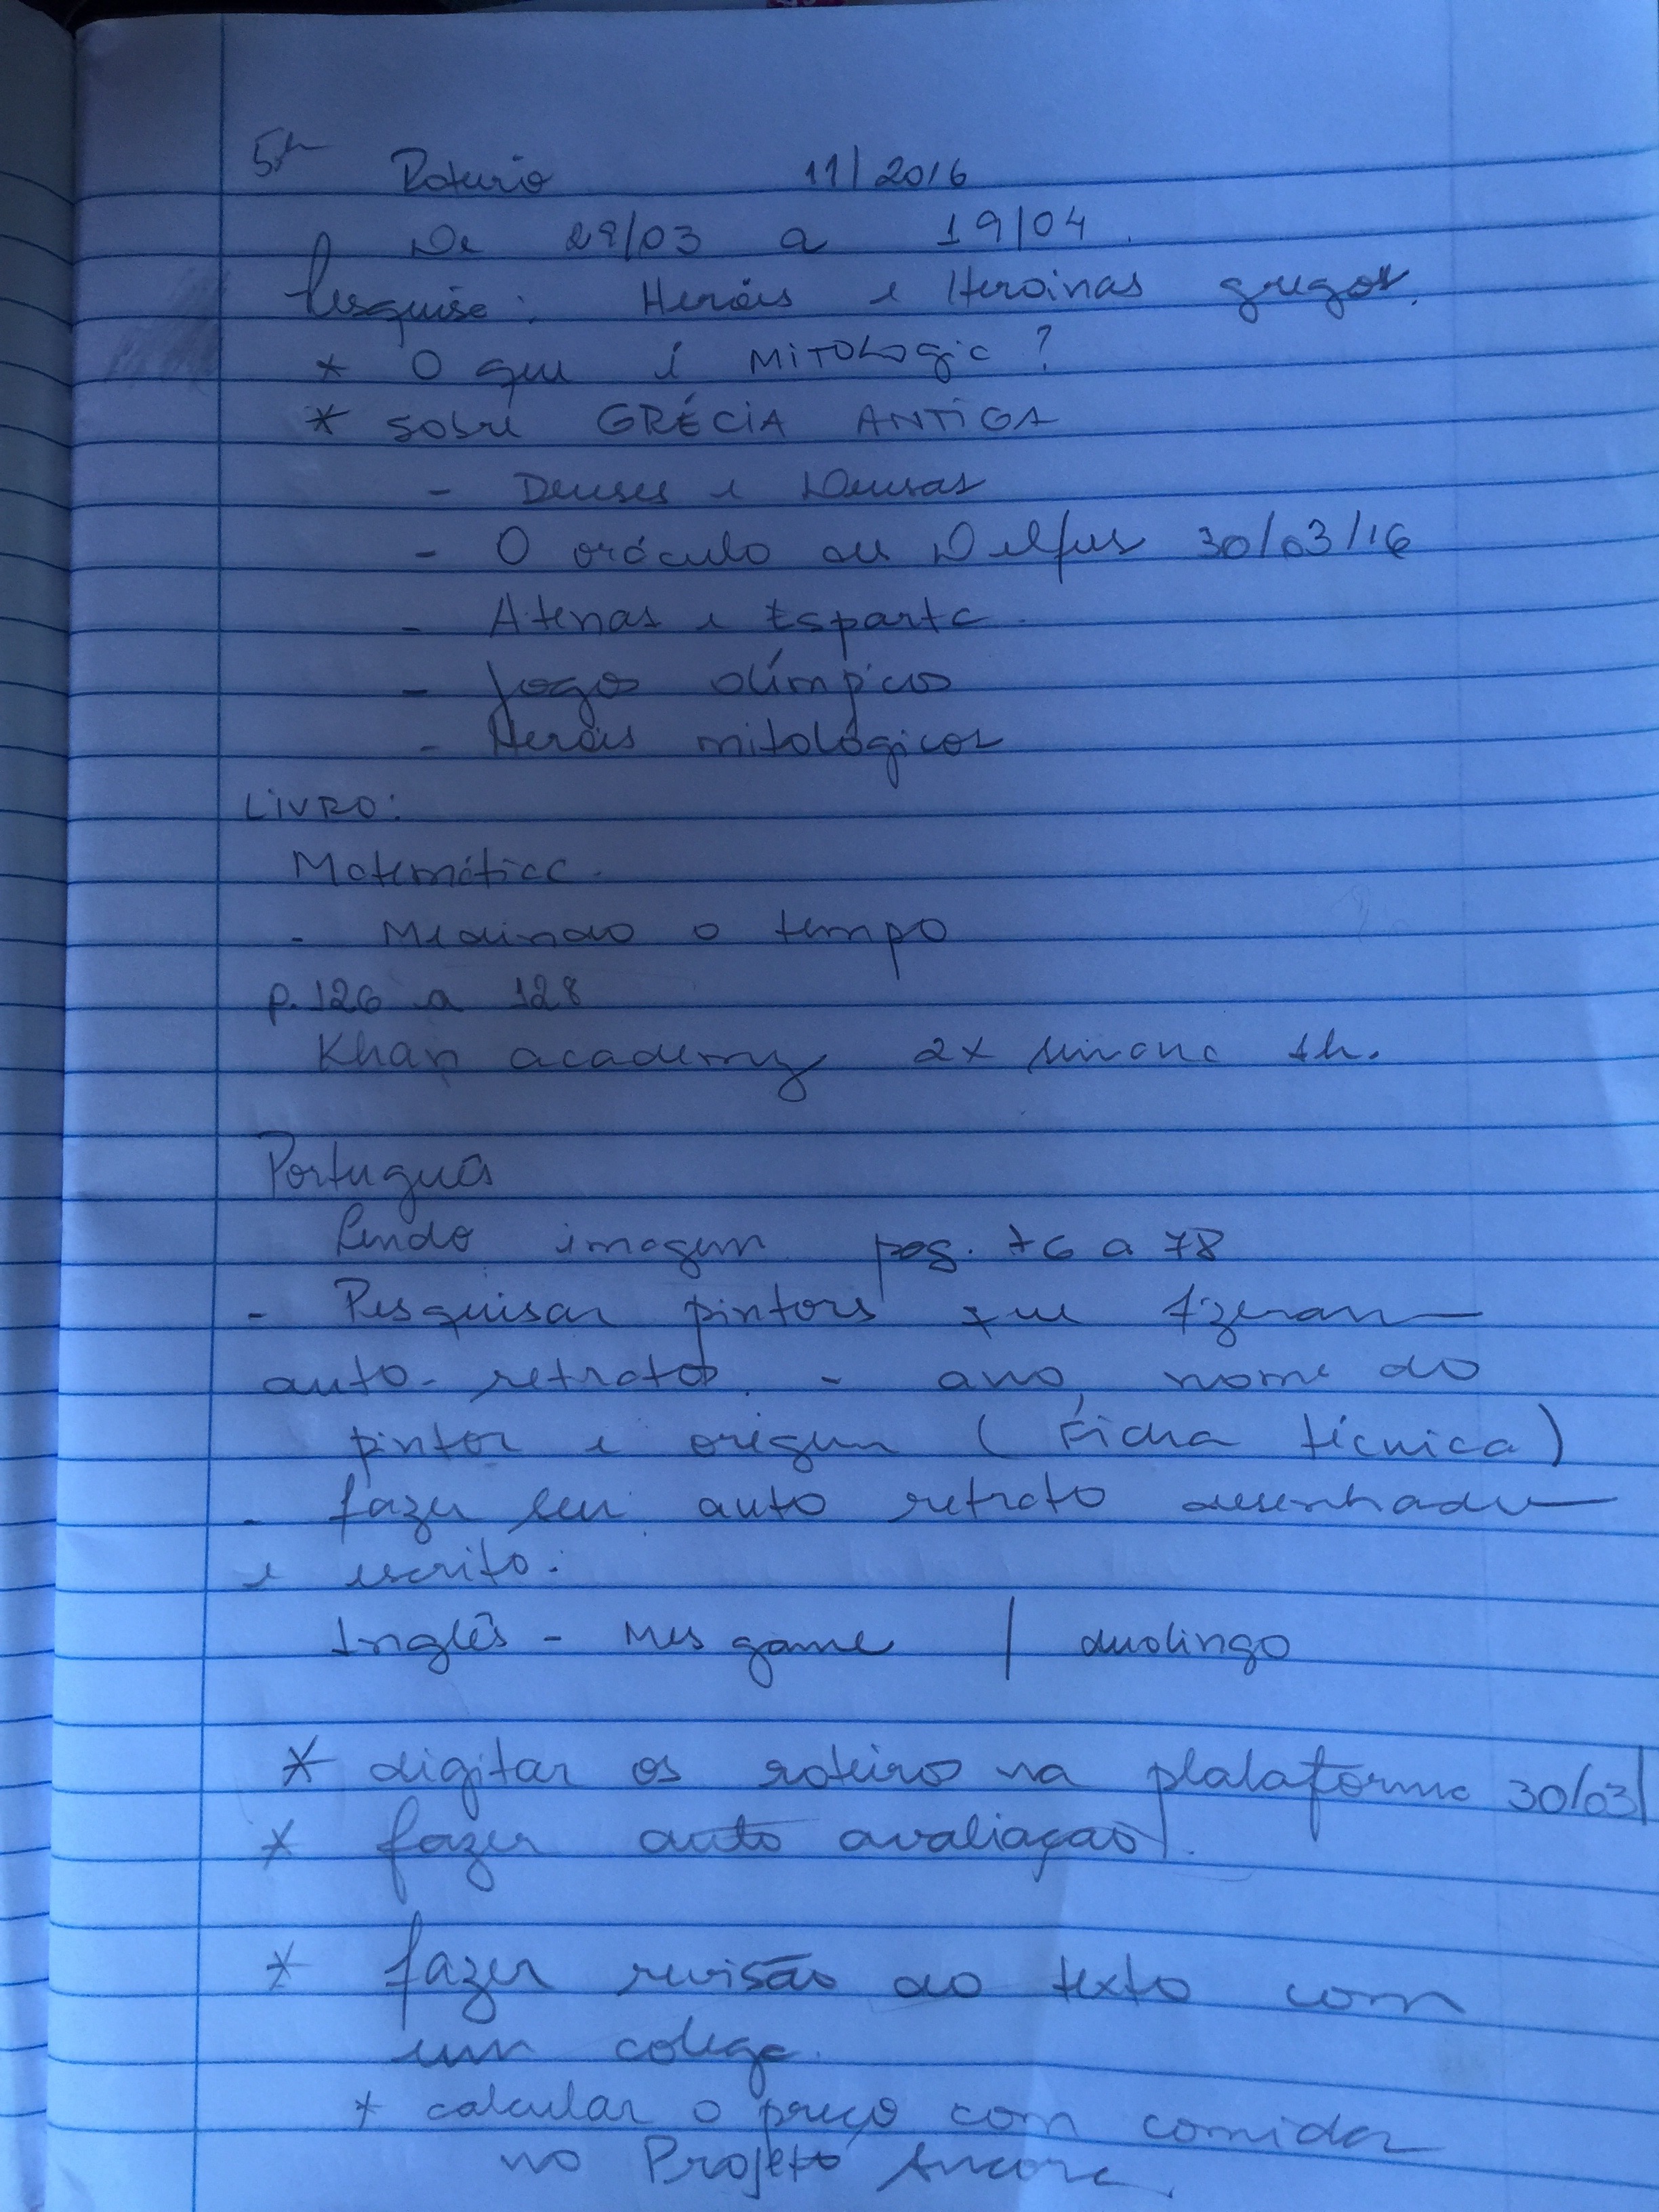 5º Roteiro 11/2016
De 29/03 a 19/04.
Pesquisa: Heróis e Heroinas gregos.
* O que é MiTOLogia?
* sobre GRÉCiA ANTiGA
- Deuses e Deusas
- O oráculo de Delfus 30/03/16
- Atenas e Esparta.
- Jogos olímpicos
- Heróis mitológicos
LiVRO:
Matemática.
- Medindo o tempo
p. 126 a 128
Khan academy 2x semana 1h.
Português
Lendo imagem pag. 76 a 78
- Pesquisar pintores que fizeram
auto-retratos. - ano, nome do
pintor e origem (Ficha técnica)
- fazer seu auto retrato desenhado
e escrito.
Inglês - Mes game / duolingo
* digitar os roteiros na plataforma 30/03/
* fazer auto avaliação.
* fazer revisão do texto com
um colega.
* calcular o preço com comida
no Projeto Ancora.